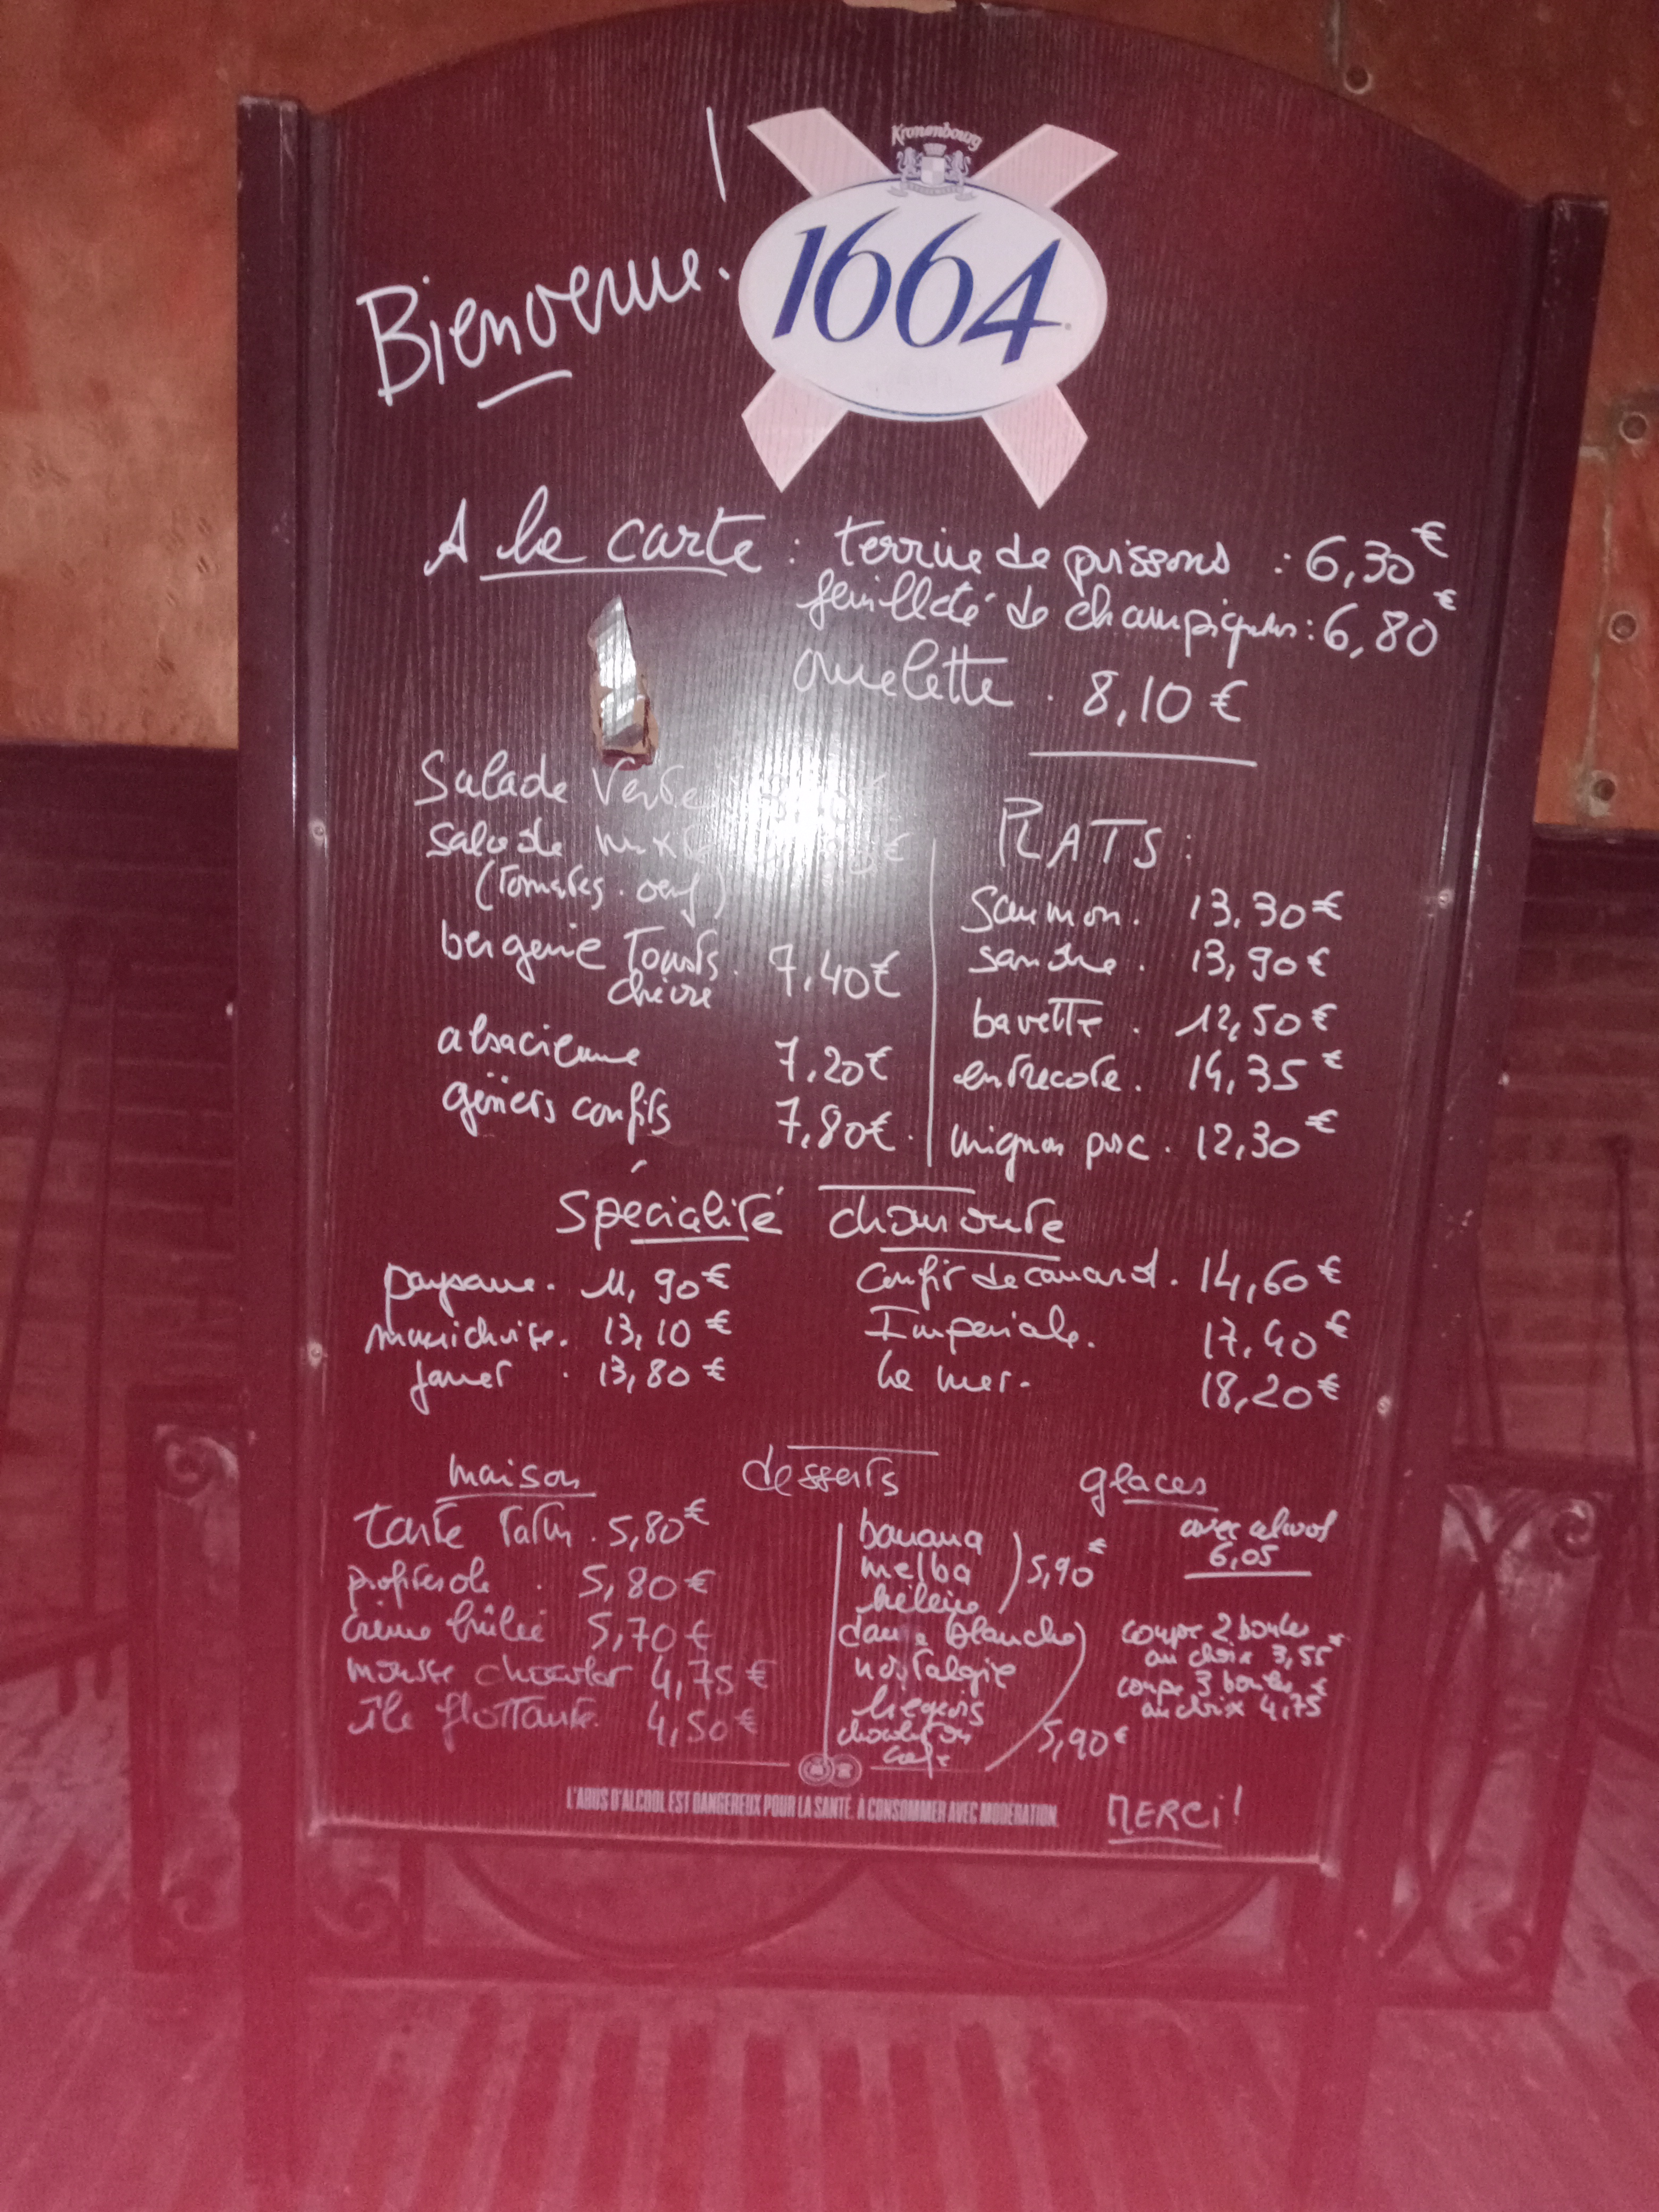 Kronenbourg
1664
Bienvenue !
A la carte : terrine de poissons : 6,30€
feuilleté de champignons : 6,80€
omelette . 8,10 €
Salade Verte €
salade mixte €
(Tomates. oeuf)
bergerie Toasts. 7,40€
chèvre
alsacienne 7,20€
gésiers confits 7,80€.
PLATS :
Saumon. 13,30€
sandre. 13,90€
bavette. 12,50€
entrecote. 14,35€
mignon porc. 12,30€
Spécialité choucroute
paysanne. 11,90€
munichoise. 13,10€
jarret . 13,80€
Confit de canard. 14,60€
Impériale. 17,40€
la mer. 18,20€
desserts
maison
Tarte Tatin. 5,80€
profiterole . 5,80€
crème brûlée 5,70€
mousse chocolat 4,75€
île flottante. 4,50€
glaces
banana
melba
hélène
5,90€
dame blanche
nostalgie
liégeois
chocolat ou
café
5,90€
avec alcool
6,05
coupe 2 boules
au choix 3,55€
coupe 3 boules
au choix 4,75€
L'ABUS D'ALCOOL EST DANGEREUX POUR LA SANTÉ. À CONSOMMER AVEC MODÉRATION.
MERCI !